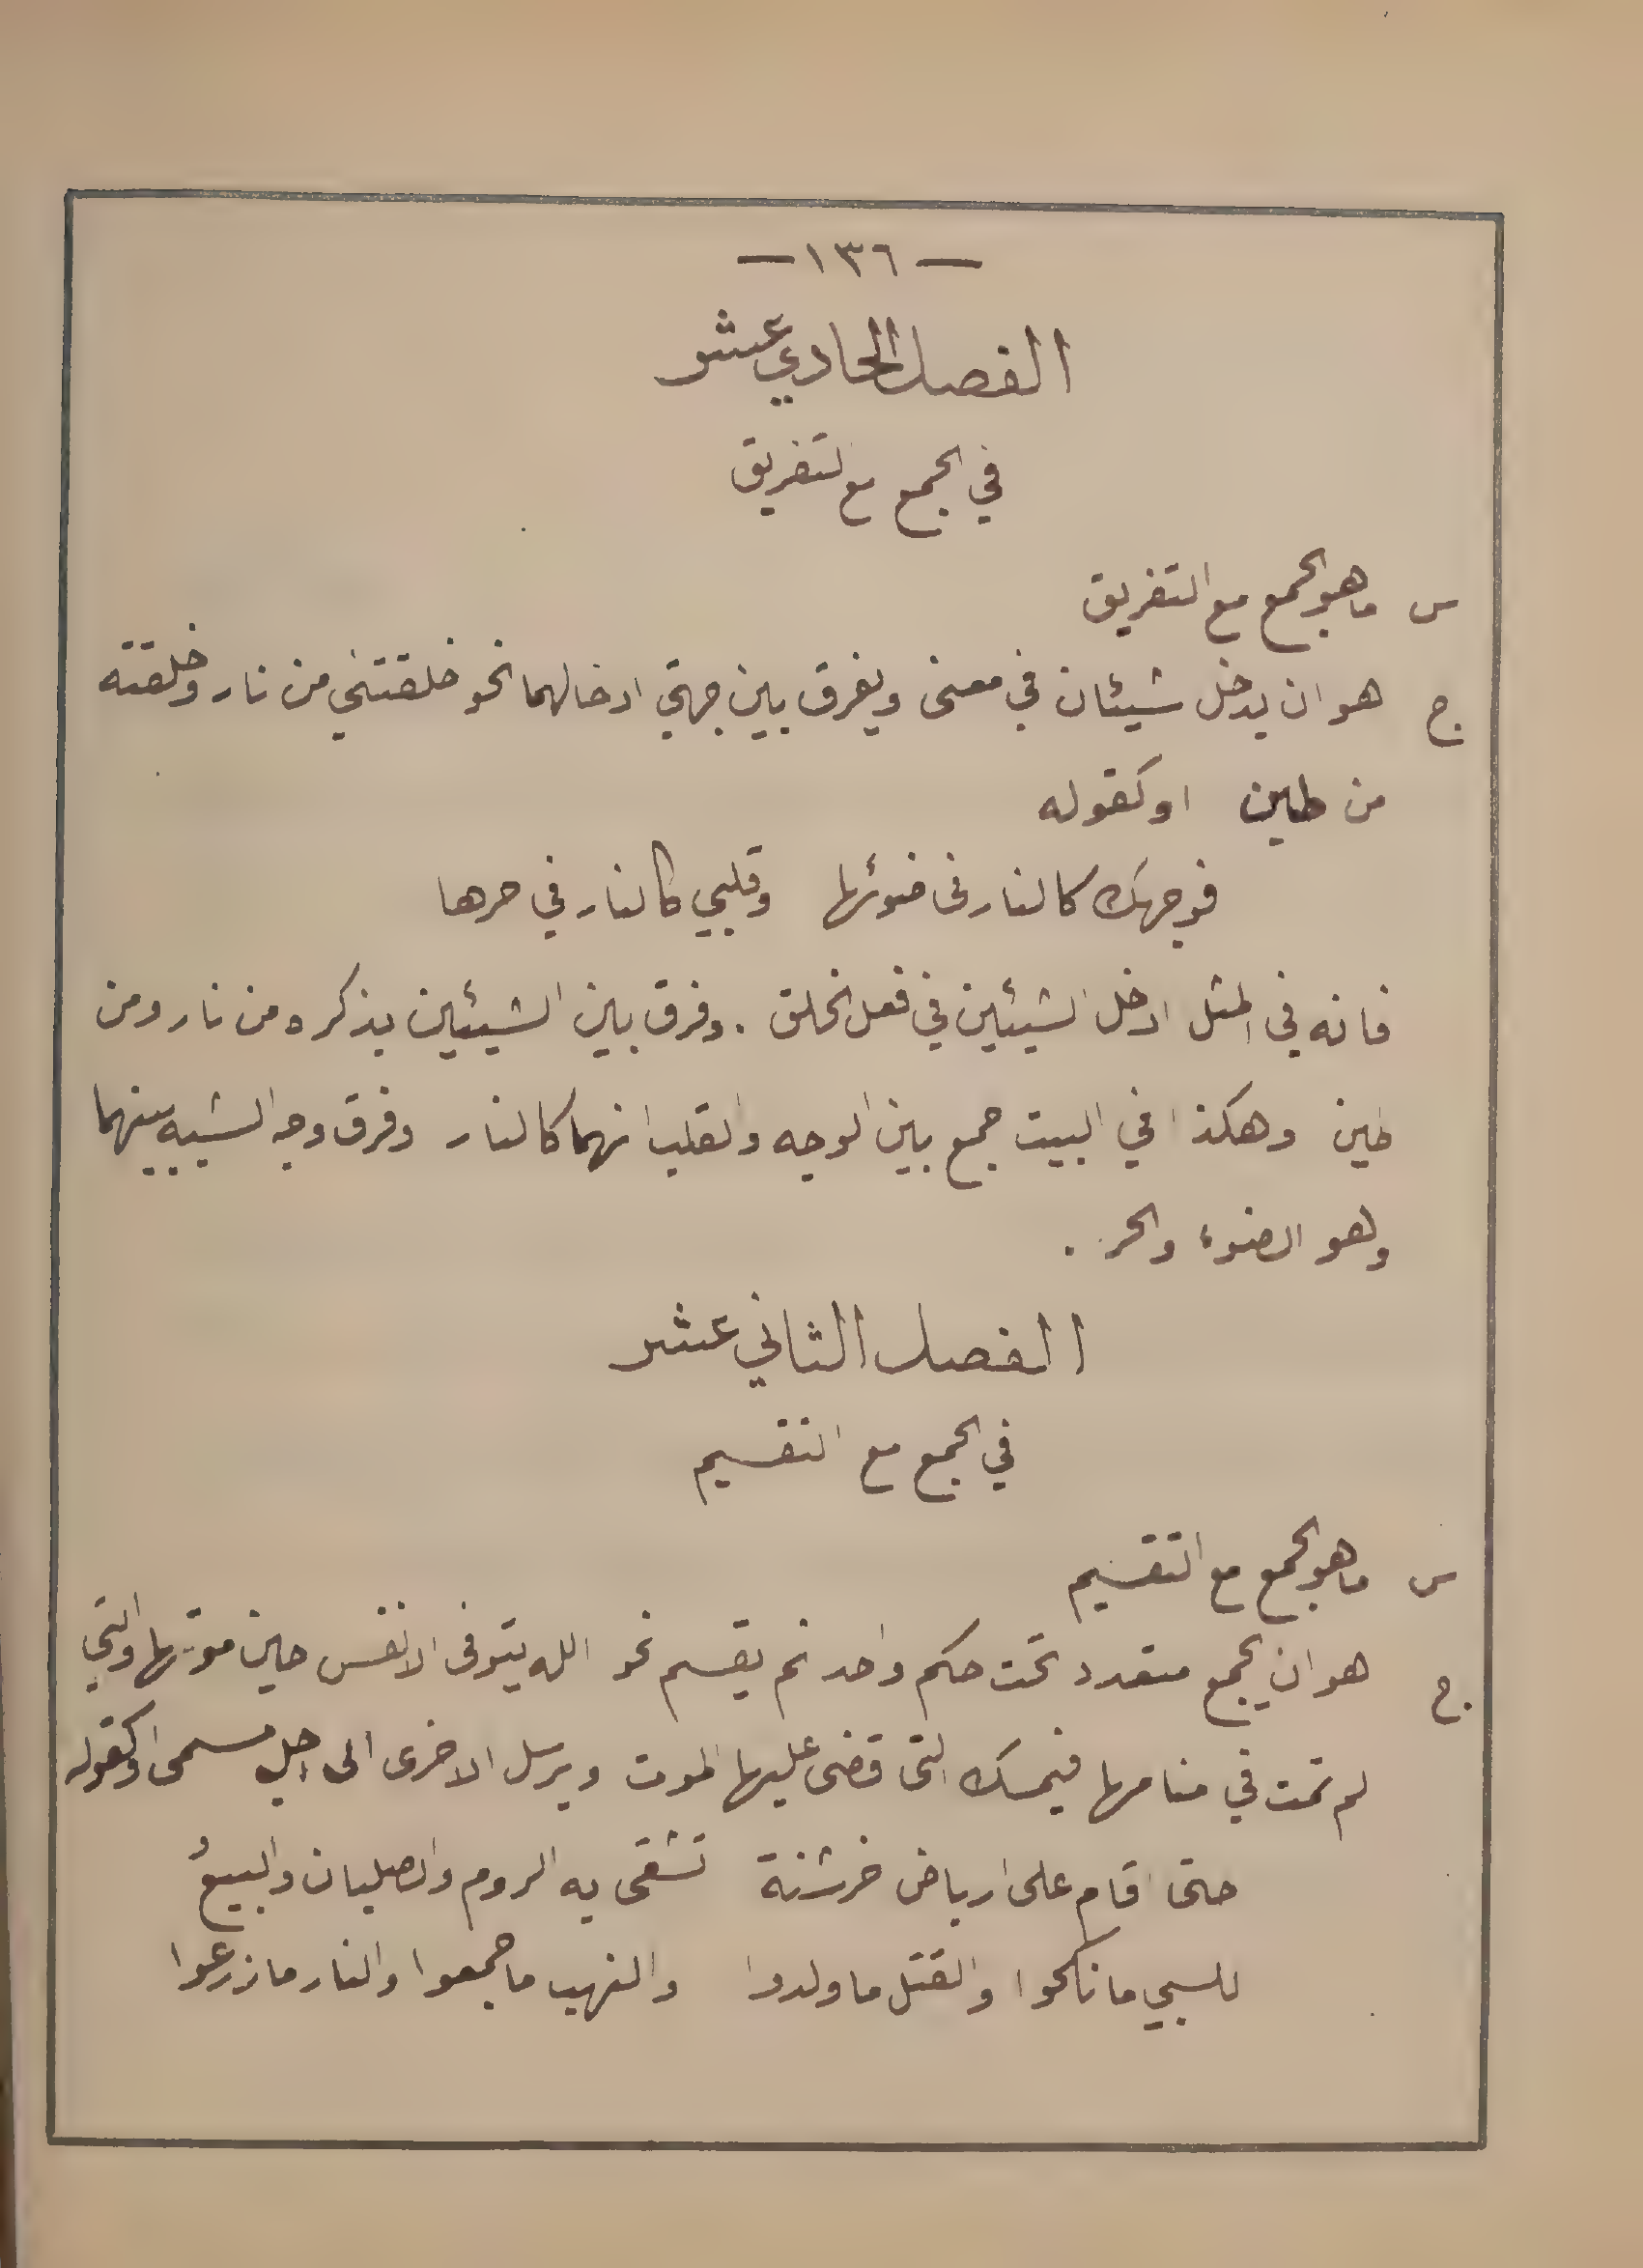 — ١٣٦ —
الفصل الحادي عشر
في الجمع مع التفريق
س ما هو الجمع مع التفريق
ج هو ان يدخل شيئان في معنى ويفرق بين جهتي ادخالهما نحو خلقتني من نار وخلقته
من طين او كقوله
فوجهك كالنار في ضوئها وقلبي كالنار في حرها
فانه في المثل ادخل الشيئين في فعل الخلق . وفرق بين الشيئين بذكره من نار ومن
طين وهكذا في البيت جمع بين الوجه والقلب انهما كالنار وفرق وجه الشبه بينهما
وهو الضوء والحر .
الفصل الثاني عشر
في الجمع مع التقسيم
س ما هو الجمع مع التقسيم
ج هو ان يجمع متعدد تحت حكم واحد ثم يقسم نحو الله يتوفى الانفس حين موتها والتي
لم تمت في منامها فيمسك التى قضى عليها الموت ويرسل الاخرى الى اجل مسمى او كقوله
حتى اقام على ارباض خرشنة تشقى به الروم والصلبان والبيعُ
للسبي ما نكحوا والقتل ما ولدوا والنهب ما جمعوا والنار ما زرعوا